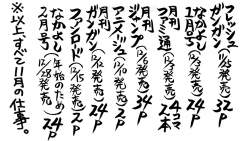 フレッシュ
ガンガン(12/4発売)32P
なかよし
1月号(12/3発売)24P
月刊
ファミ通(12/3発売)4コマ2本
月刊
ジャンプ(12/6発売)34P
アニメージュ(12/10発売)2P
月刊
ガンガン(12/12発売)24P
ファンロード(12/15発売)2P
なかよし(年始のため
2月号(12/28発売)24P
※以上、すべて11月の仕事。